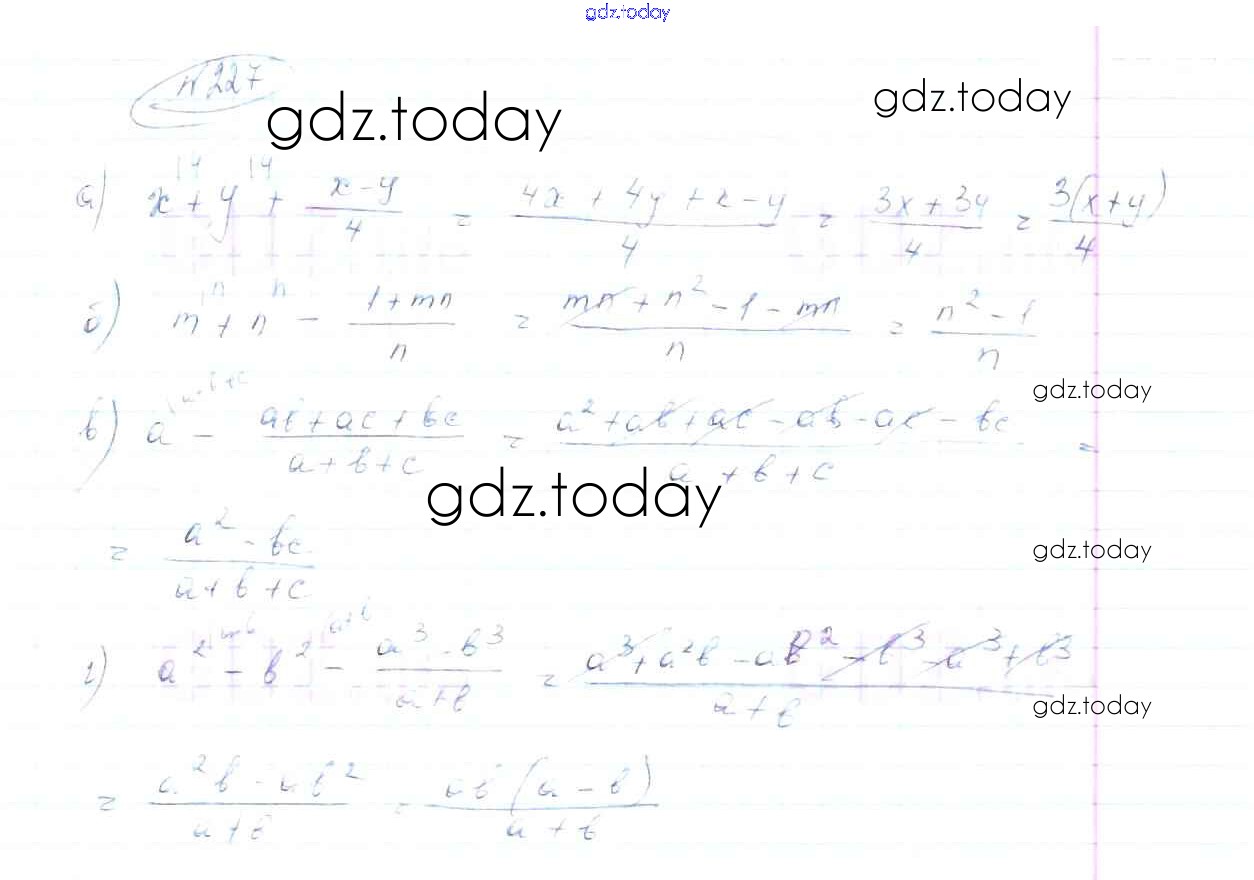 gdz.today
№227
gdz.today
gdz.today
а) x + y + (x-y)/4 = (4x + 4y + x - y)/4 = (3x + 3y)/4 = 3(x+y)/4
б) m + n - (1+mn)/n = (mn + n² - 1 - mn)/n = (n² - 1)/n
gdz.today
в) a - (ab + ac + bc)/(a + b + c) = (a² + ab + ac - ab - ac - bc)/(a + b + c) =
gdz.today
= (a² - bc)/(a + b + c)
gdz.today
г) a² - b² - (a³ - b³)/(a+b) = (a³ + a²b - ab² - b³ - a³ + b³)/(a + b)
gdz.today
= (a²b - ab²)/(a+b) = ab(a - b)/(a + b)